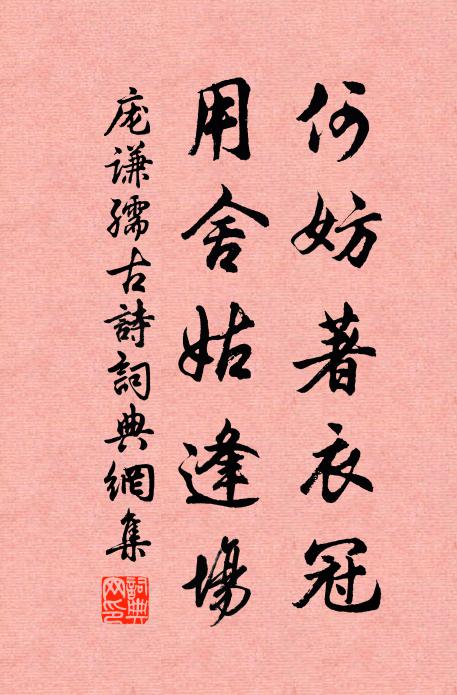 何妨著衣冠
用舍姑逢場
庞谦孺古詩詞典網集
詞典网印